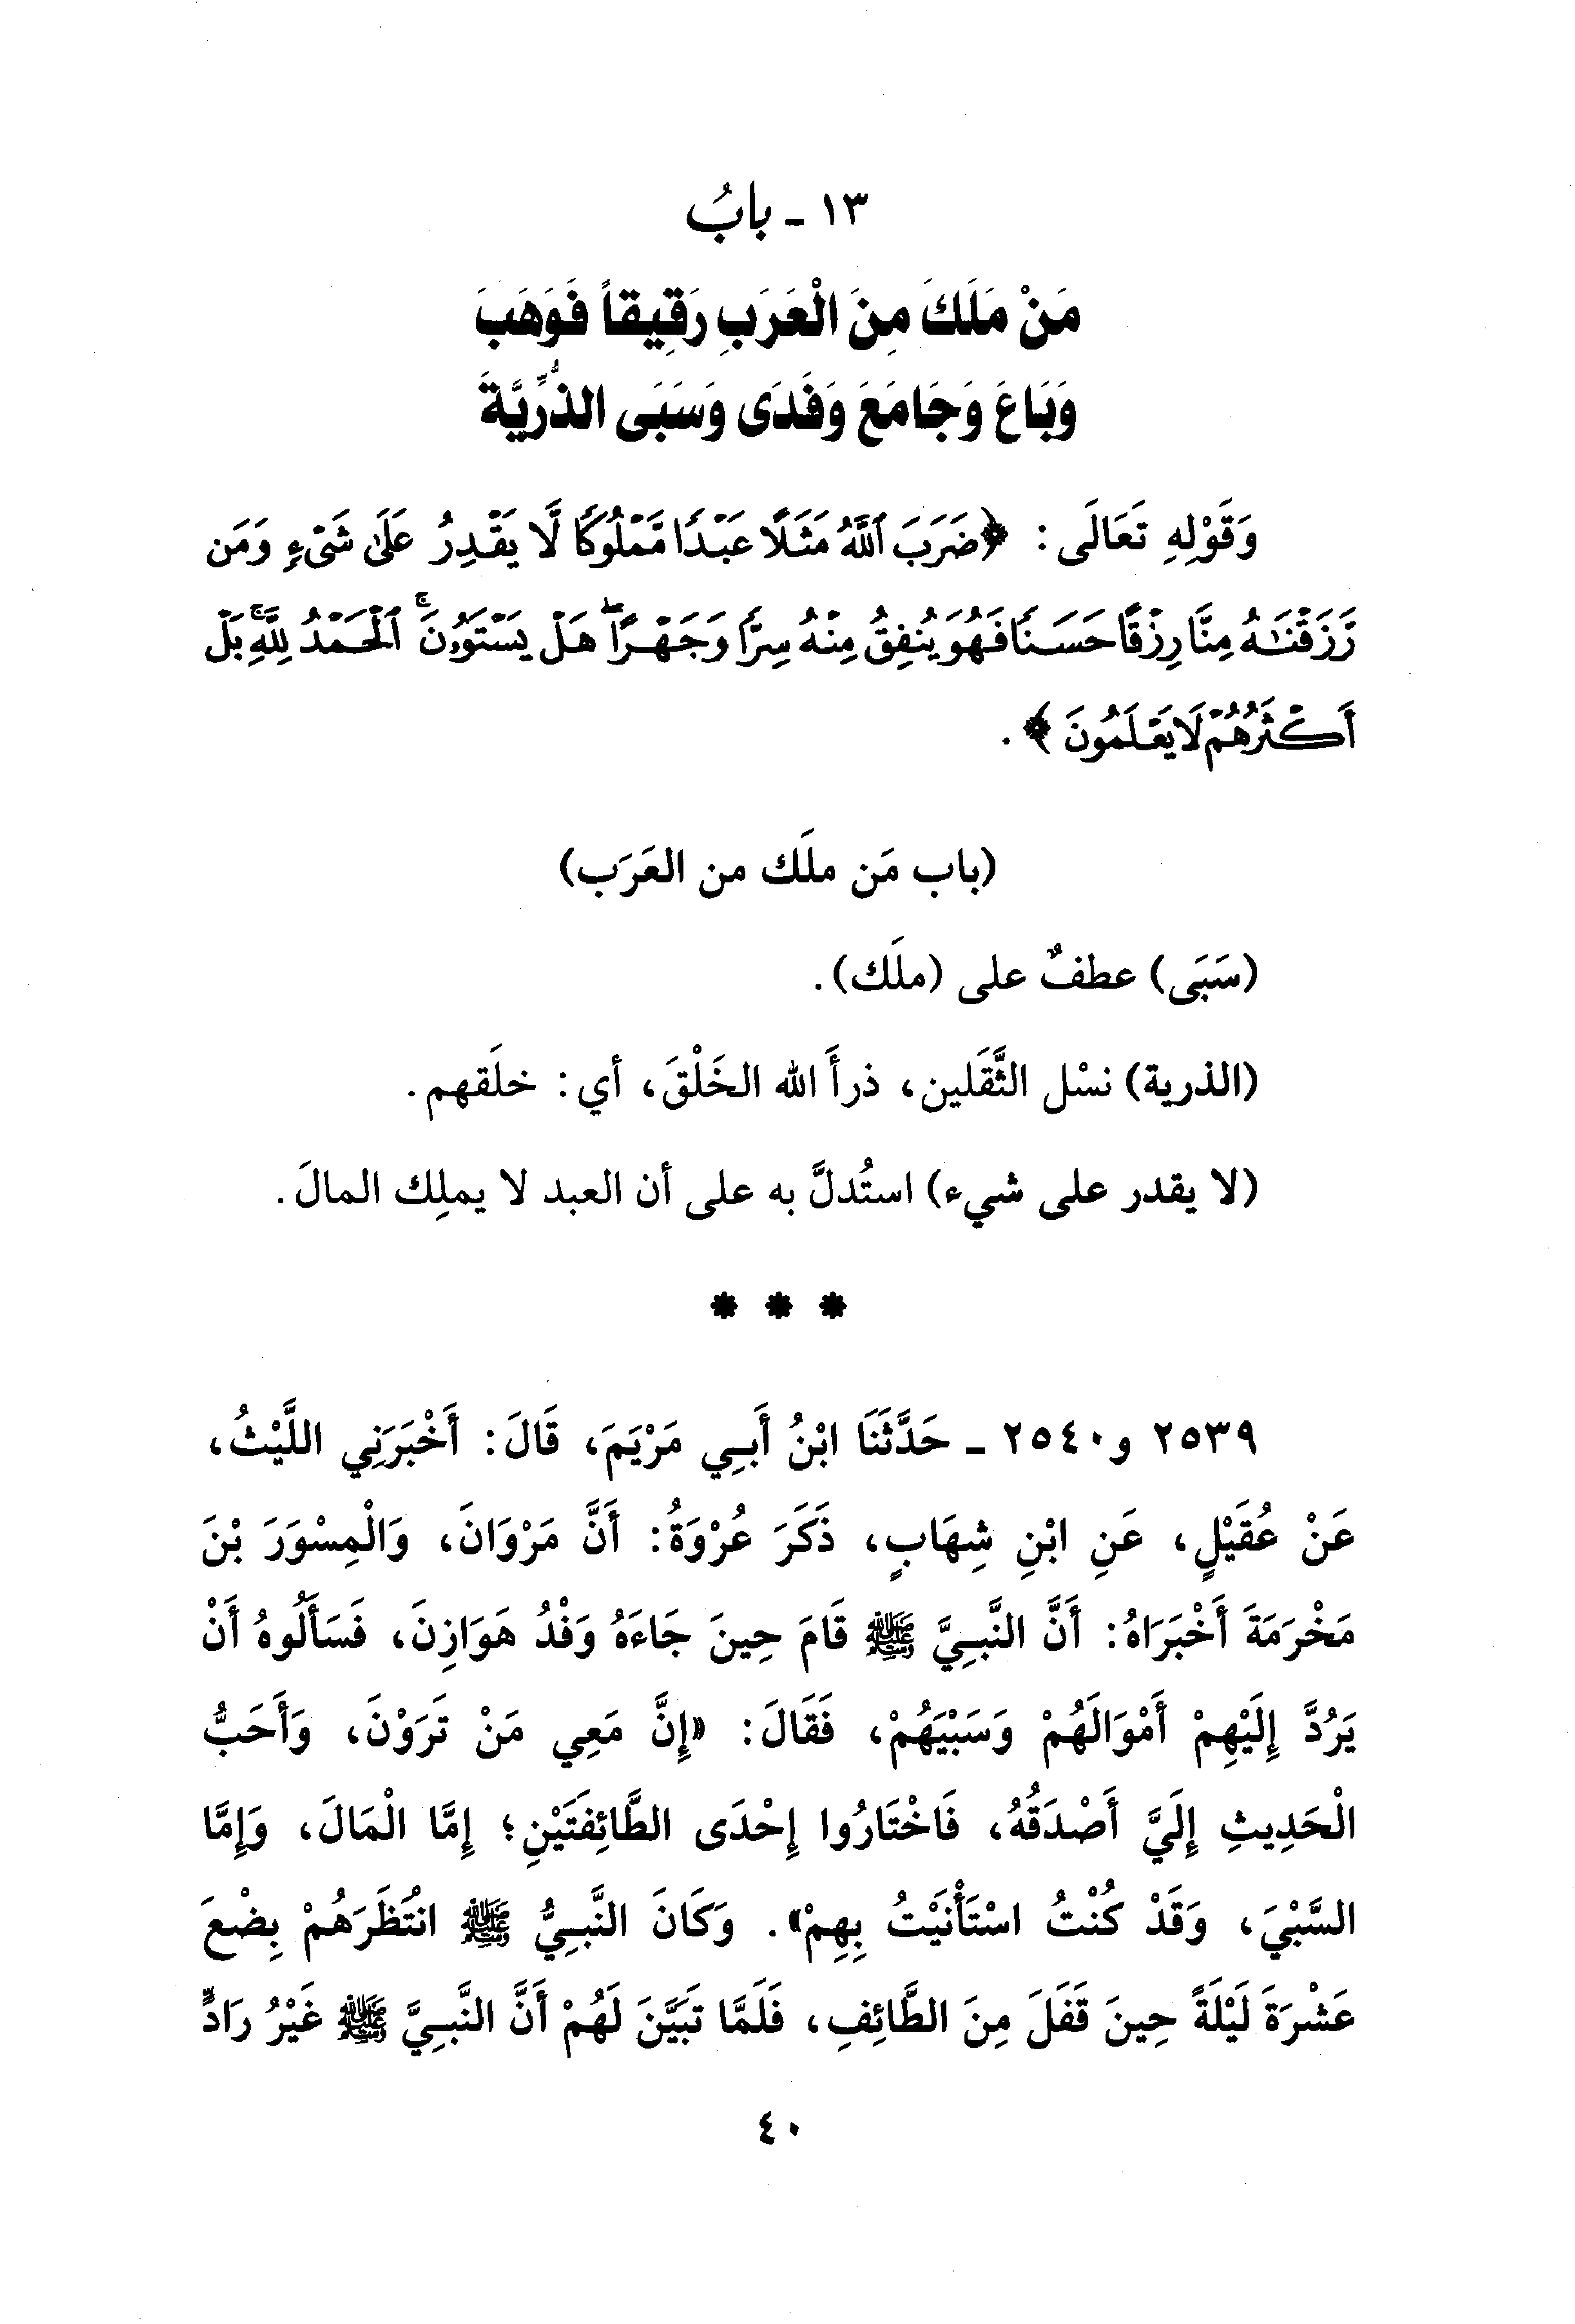 ١٣ - بابُ
مَنْ مَلَكَ مِنَ الْعَرَبِ رَقِيقاً فَوَهَبَ
وَبَاعَ وَجَامَعَ وَفَدَى وَسَبَى الذُّرِّيَّةَ
وَقَوْلِهِ تَعَالَى: ﴿ضَرَبَ ٱللَّهُ مَثَلًا عَبْدًا مَّمْلُوكًا لَّا يَقْدِرُ عَلَىٰ شَىْءٍ وَمَن
رَّزَقْنَٰهُ مِنَّا رِزْقًا حَسَنًا فَهُوَ يُنفِقُ مِنْهُ سِرًّا وَجَهْرًا ۖ هَلْ يَسْتَوُۥنَ ۚ ٱلْحَمْدُ لِلَّهِ ۚ بَلْ
أَكْثَرُهُمْ لَا يَعْلَمُونَ﴾.
(باب مَن ملَك من العَرَب)
(سَبَى) عطفٌ على (ملَك).
(الذرية) نسْل الثَّقَلين، ذرأَ الله الخَلْقَ، أي: خلَقهم.
(لا يقدر على شيء) استُدلَّ به على أن العبد لا يملِك المالَ.
* * *
٢٥٣٩ و٢٥٤٠ - حَدَّثَنَا ابْنُ أَبِي مَرْيَمَ، قَالَ: أَخْبَرَنِي اللَّيْثُ،
عَنْ عُقَيْلٍ، عَنِ ابْنِ شِهَابٍ، ذَكَرَ عُرْوَةُ: أَنَّ مَرْوَانَ، وَالْمِسْوَرَ بْنَ
مَخْرَمَةَ أَخْبَرَاهُ: أَنَّ النَّبِيَّ ﷺ قَامَ حِينَ جَاءَهُ وَفْدُ هَوَازِنَ، فَسَأَلُوهُ أَنْ
يَرُدَّ إِلَيْهِمْ أَمْوَالَهُمْ وَسَبْيَهُمْ، فَقَالَ: «إِنَّ مَعِي مَنْ تَرَوْنَ، وَأَحَبُّ
الْحَدِيثِ إِلَيَّ أَصْدَقُهُ، فَاخْتَارُوا إِحْدَى الطَّائِفَتَيْنِ؛ إِمَّا الْمَالَ، وَإِمَّا
السَّبْيَ، وَقَدْ كُنْتُ اسْتَأْنَيْتُ بِهِمْ». وَكَانَ النَّبِيُّ ﷺ انْتَظَرَهُمْ بِضْعَ
عَشْرَةَ لَيْلَةً حِينَ قَفَلَ مِنَ الطَّائِفِ، فَلَمَّا تَبَيَّنَ لَهُمْ أَنَّ النَّبِيَّ ﷺ غَيْرُ رَادٍّ
٤٠